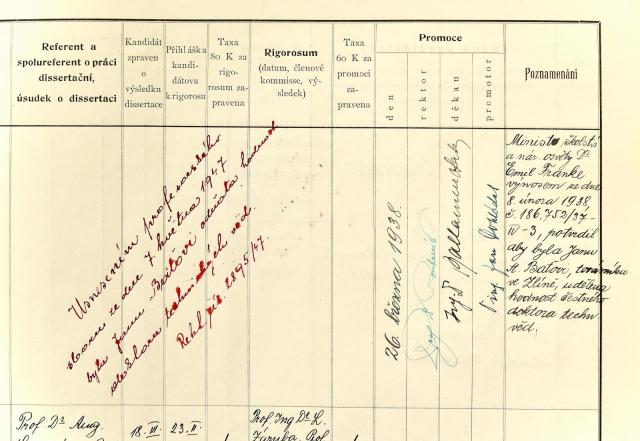 Referent a
spolureferent o práci
dissertační,
úsudek o dissertaci
Kandidát
zpraven
o
výsledku
dissertace
Přihláška
kandi-
dátova
k rigorosu
Taxa
80 K za
rigo-
rosum za-
pravena
Rigorosum
(datum, členové
kommisse, vý-
sledek)
Taxa
60 K za
promoci
za-
pravena
Promoce
den
rektor
děkan
promotor
Poznamenání
Usnesením profesorského
sboru ze dne 7 května 1947
byla Janu Baťovi odňata hodnost
doktora technických věd.
2895/47
26. března 1938.
Ing. Jan
Ministr školství
a nár. osvěty Dr
Emil Franke
výnosem ze dne
8. února 1938,
č. 186.752/37-
IV-3, potvrdil
aby byla Janu
A. Baťovi, továrníku
ve Zlíně, udělena
hodnost čestného
doktora techn.
věd.
Prof. Dr Aug.
18. III.
23. II.
Prof. Ing Dr L.
Záruba, Prof.